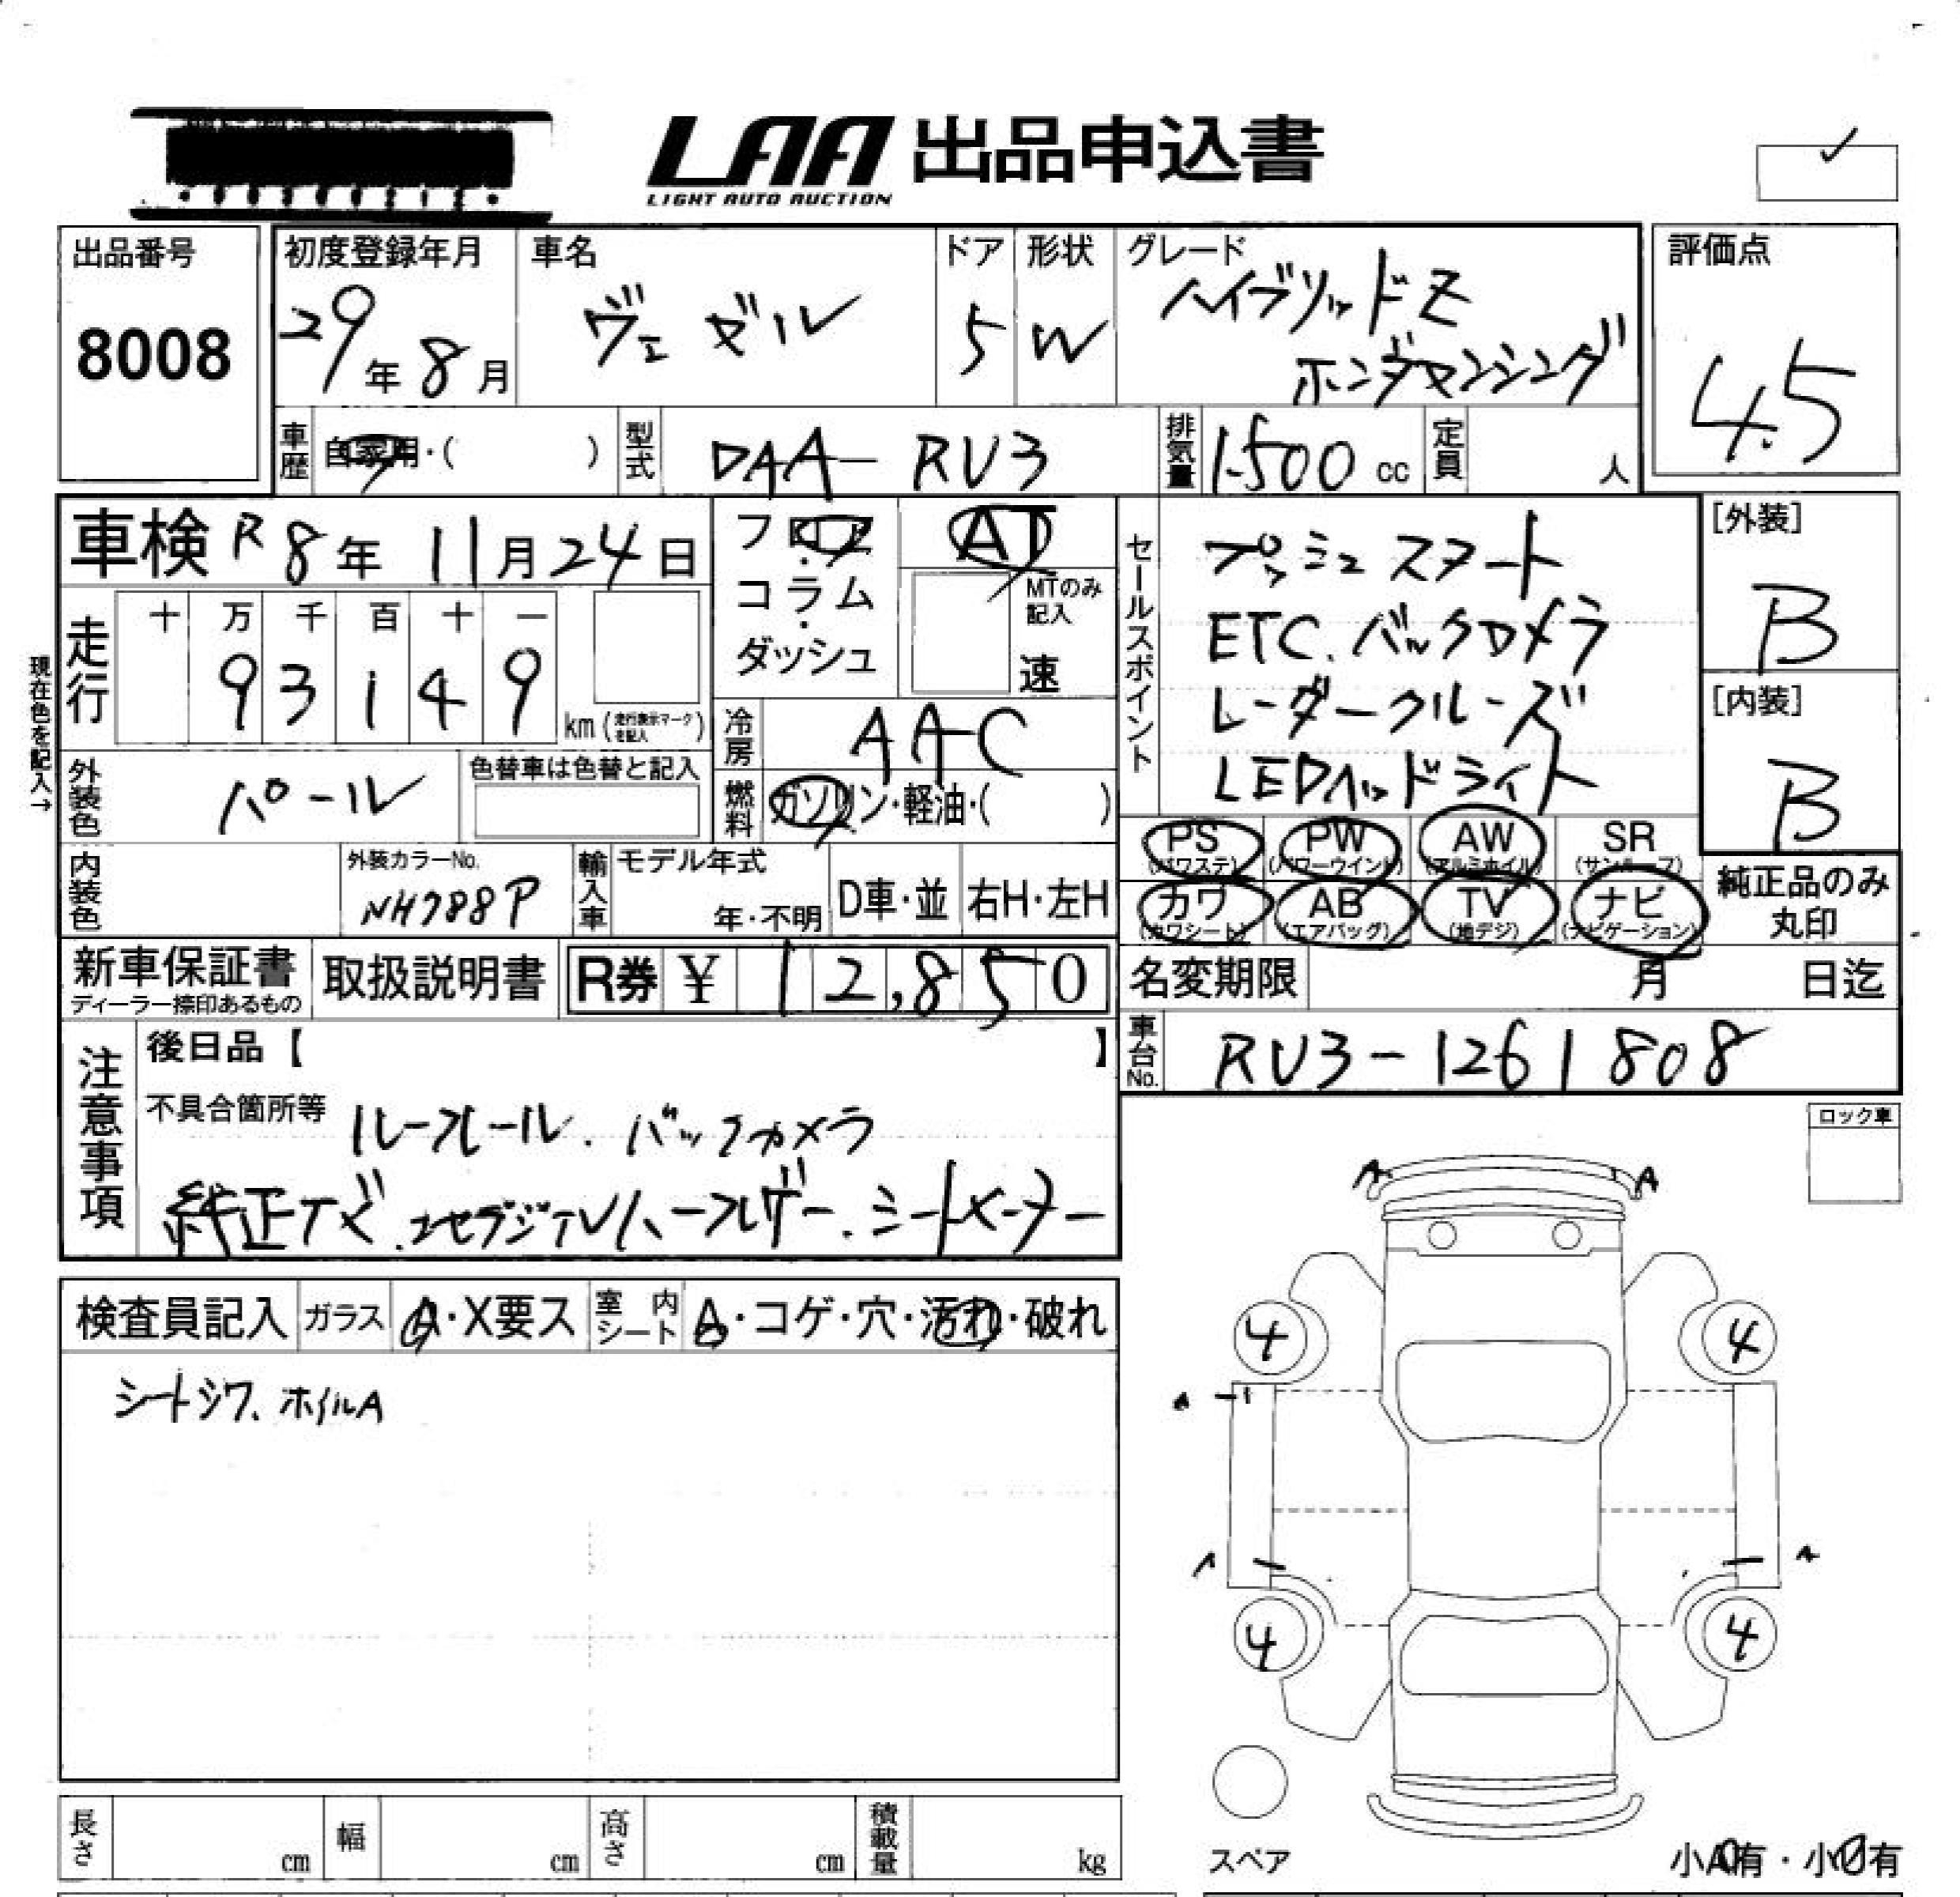 LAA 出品申込書
LIGHT AUTO AUCTION
出品番号
8008
初度登録年月
29年8月
車名
ヴェゼル
ドア
5
形状
W
グレード
ハイブリッドZ
ホンダセンシング
評価点
4.5
車歴
自家用・( )
型式
DAA-RU3
排気量
1500cc
定員
人
車検 R8年11月24日
走行
十 万 千 百 十 一
9 3 1 4 9
km(走行表示マークを記入)
現在色を記入→
フロア・コラム・ダッシュ
AT
MTのみ記入
速
冷房
AAC
燃料
ガソリン・軽油・( )
外装色
パール
色替車は色替と記入
内装色
外装カラーNo.
NH788P
輸入車
モデル年式
年・不明
D車・並
右H・左H
セールスポイント
プッシュスタート
ETC. バックカメラ
レーダークルーズ
LEDヘッドライト
[外装]
B
[内装]
B
PS(パワステ) PW(パワーウインド) AW(アルミホイル) SR(サンルーフ)
カワ(カワシート) AB(エアバッグ) TV(地デジ) ナビ(ナビゲーション)
純正品のみ丸印
新車保証書
ディーラー捺印あるもの
取扱説明書
R券 ¥12,850
名変期限 月 日迄
車台No.
RU3-1261808
注意事項
後日品【 】
不具合箇所等
ルーフレール. バックカメラ
純正ナビ.フルセグデジTV ハーフレザー.シートヒーター
ロック車
検査員記入
ガラス
A・X要ス
室内シート
A・コゲ・穴・汚れ・破れ
シートシワ、ホイルA
A
A
4
4
A
A
A
4
4
スペア
小A有・小U有
長さ cm
幅 cm
高さ cm
積載量 kg